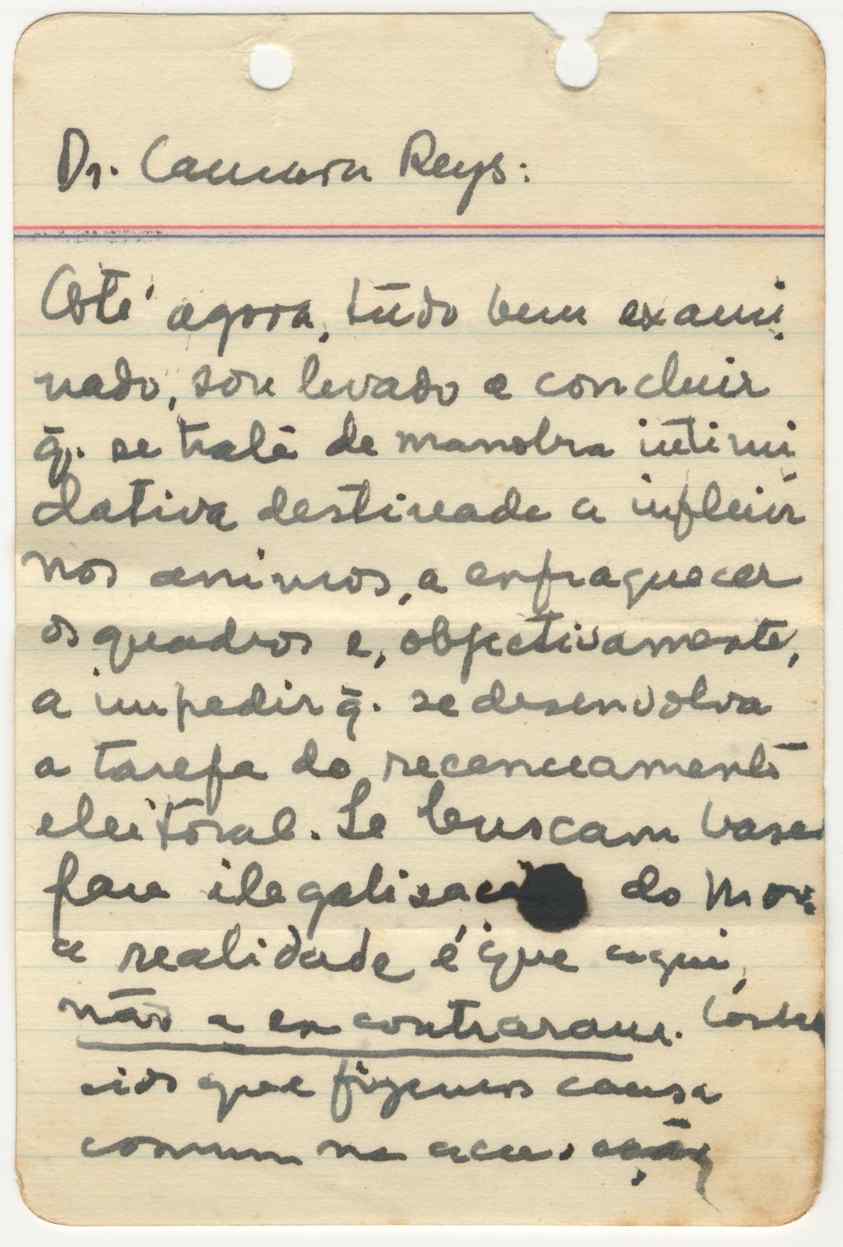 Dr. Camara Reys:
Até agora, tudo bem exami
nado, sou levado a concluir
q̄. se trata de manobra intimi
dativa destinada a influir
nos animos, a enfraquecer
os quadros e, objectivamente,
a impedir q̄. se desenvolva
a tarefa do recenceamento
eleitoral. Se buscam bases
para ilegalisação do Mov.
a realidade é que aqui,
não a encontraram.
que fizemos causa
comum na